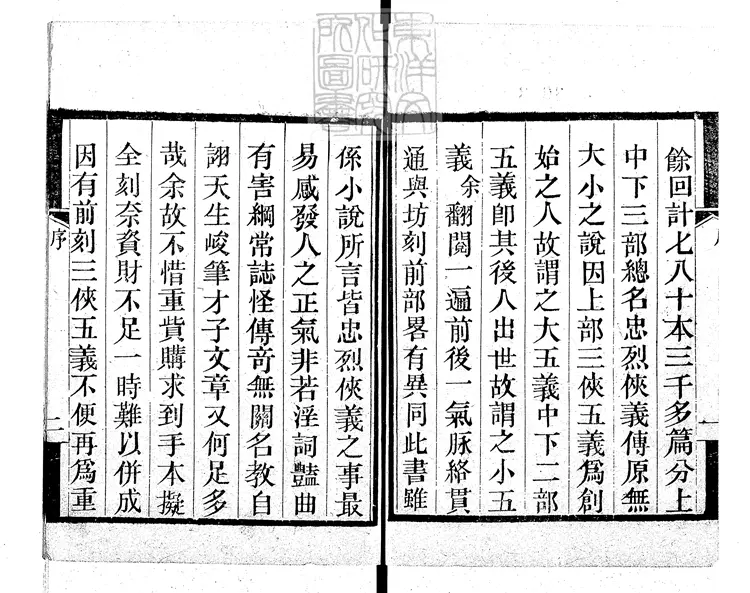 餘回計七八十本三千多篇分上
中下三部總名忠烈俠義傳原無
大小之說因上部三俠五義爲創
始之人故謂之大五義中下二部
五義卽其後人出世故謂之小五
義余翻閱一遍前後一氣脉絡貫
通與坊刻前部畧有異同此書雖
係小說所言皆忠烈俠義之事最
易感發人之正氣非若淫詞豔曲
有害綱常誌怪傳奇無關名教自
詡天生峻筆才子文章又何足多
哉余故不惜重貲購求到手本擬
全刻奈資財不足一時難以併成
因有前刻三俠五義不便再爲重
序
二
東洋文化研究所圖書